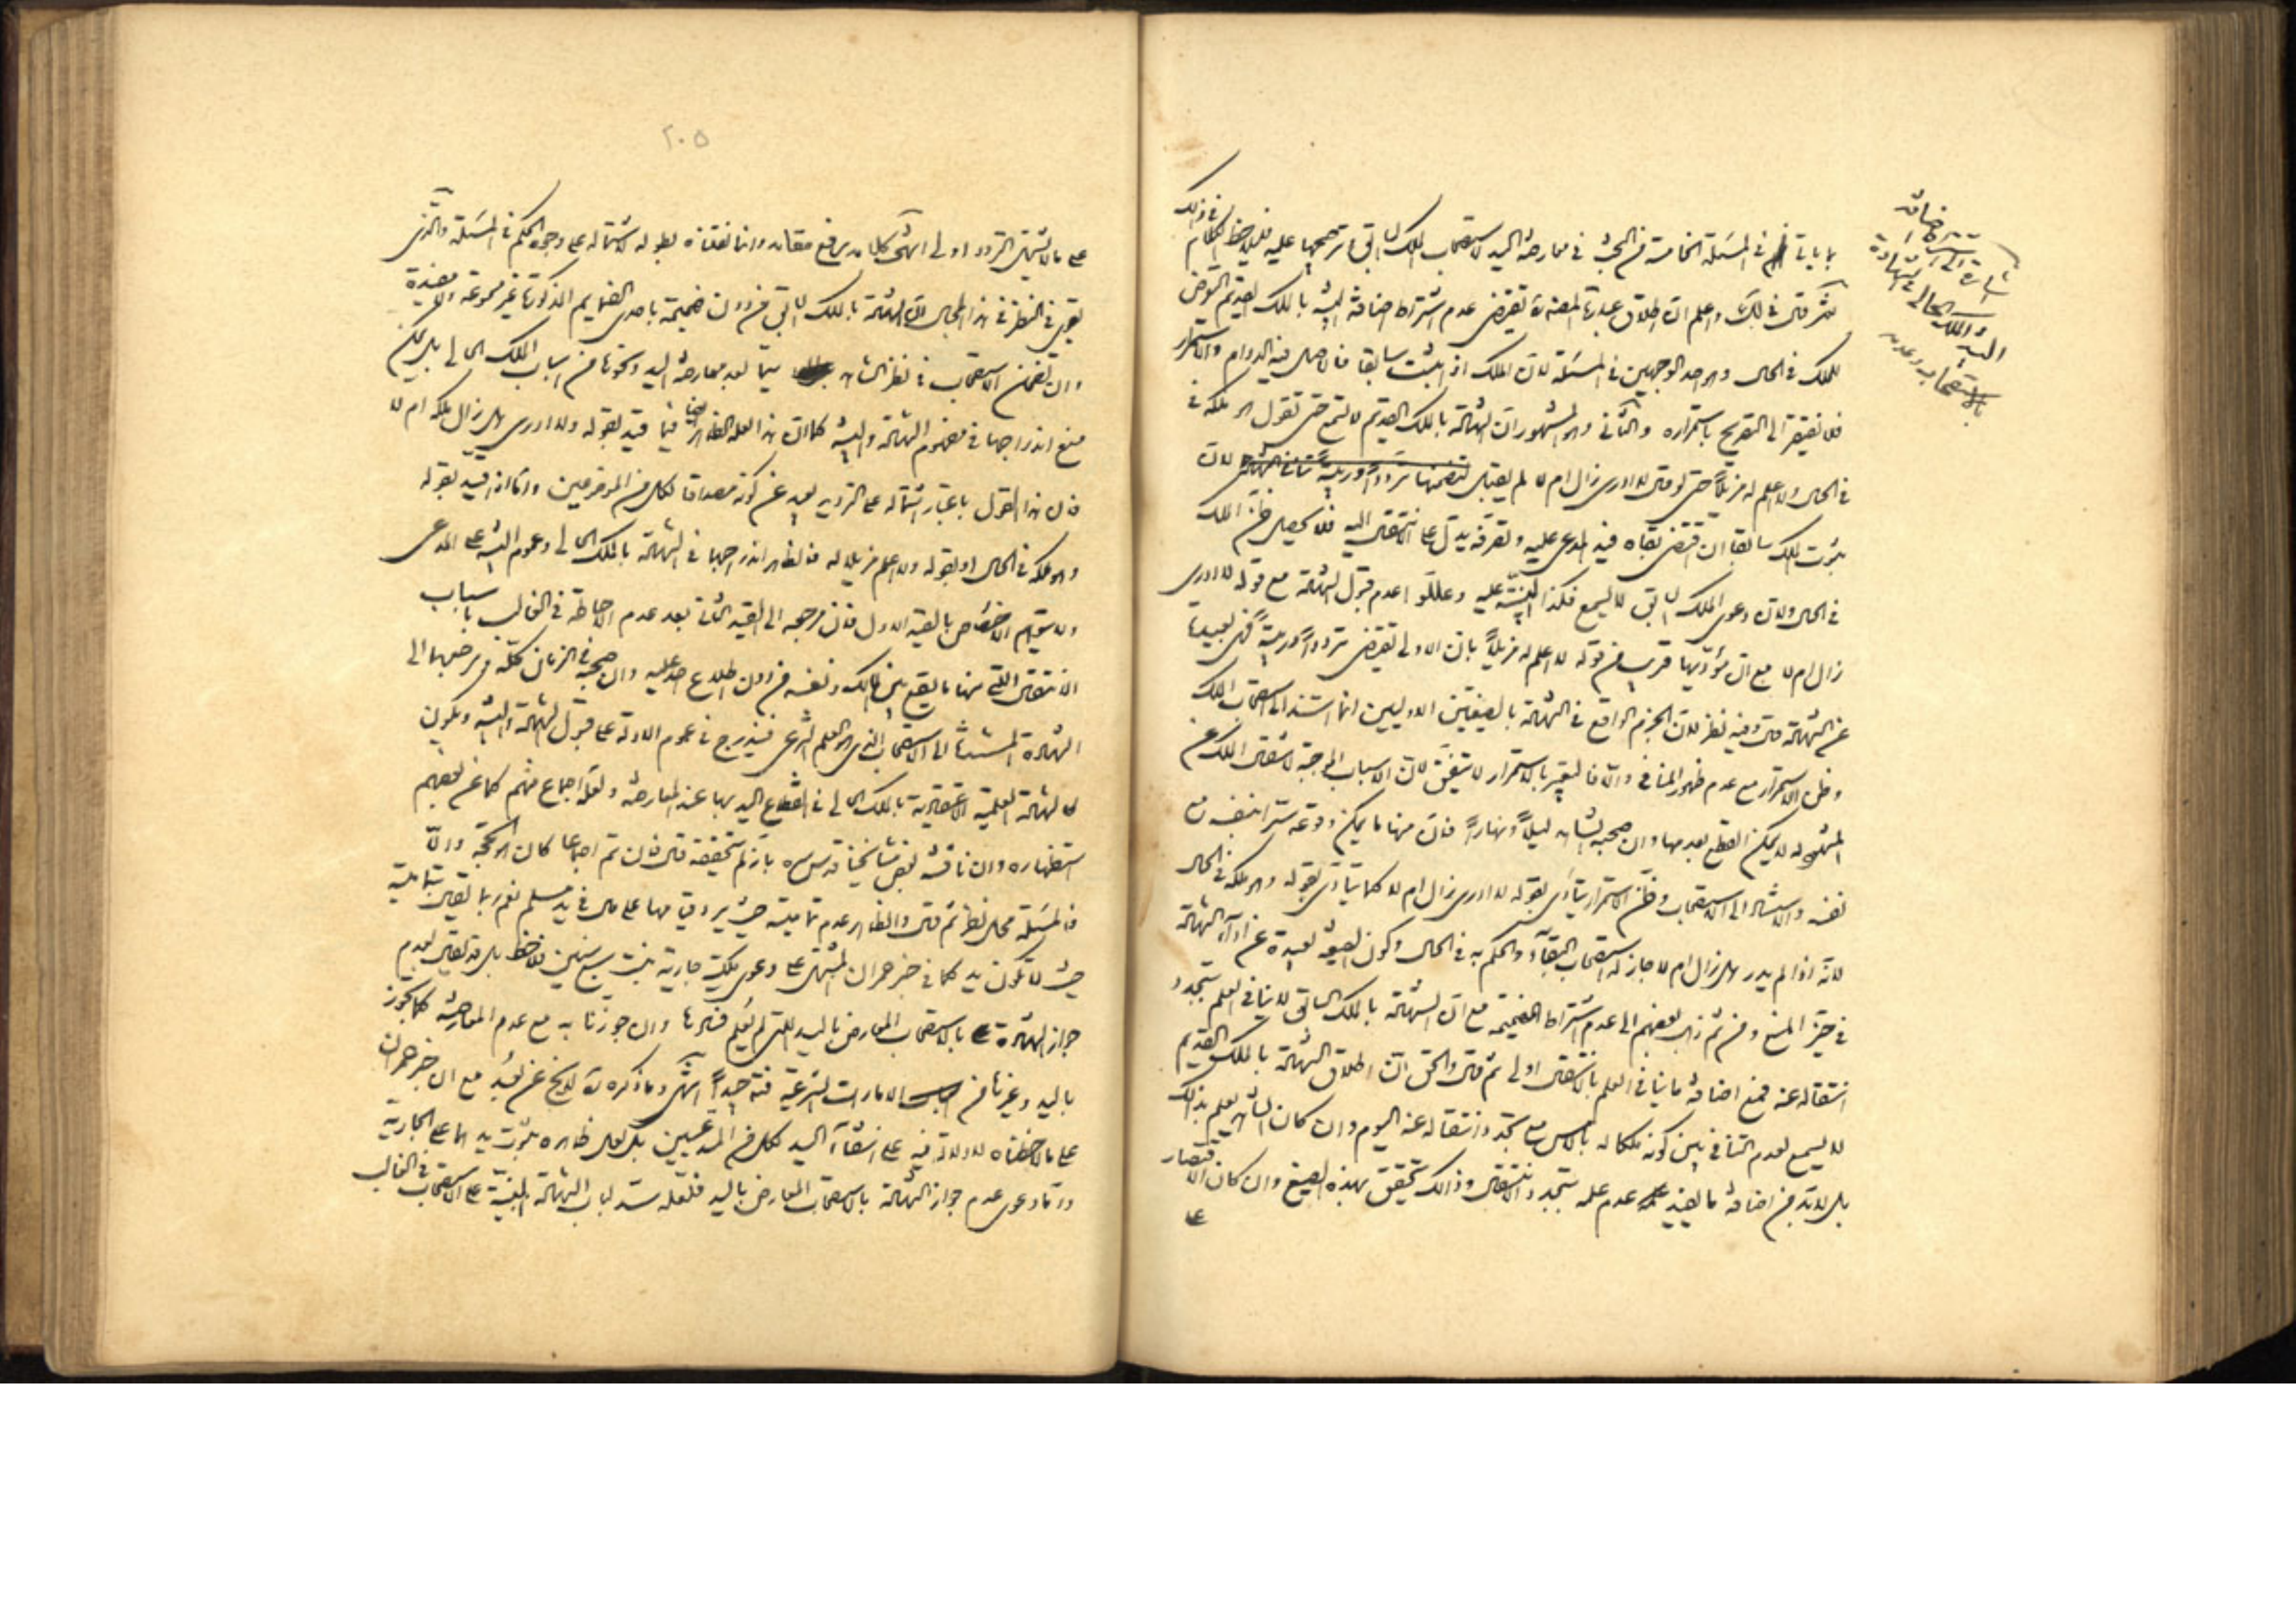 بما يأتي في المسئلة الخامسة من البحث في معارضة اليد لاستصحاب الملك السابق او ترجيحها عليه فليلاحظ الكلام في ذلك
ثم قال في لك واعلم ان اطلاق عبارة المصنف يقتضى عدم اشتراط اضافة البينة بالملك القديم التعرض
للملك في الحال وهو احد الوجهين في المسئلة لان الملك اذا ثبت سابقا فالاصل فيه الدوام والاستمرار
فلا يفتقر الى التصريح باستمراره والثاني وهو المشهور ان الشهادة بالملك القديم لا تسمع حتى تقول وهو ملكه في
في الحال ولا اعلم له مزيلا حتى لو قال لا ادرى زال ام لا لم يقبل لتضمنها ترددا وريبة لان
ثبوت الملك سابقا ان اقتضى بقاه فيد المدعى عليه وتصرفه يدل على الانتقال اليه فلا يحصل ظن الملك
في الحال ولان دعوى الملك السابق لا يسمع فكذا البينة عليه وعللوا عدم قبول الشهادة مع قوله لا ادرى
زال ام لا مع ان مؤديها قريب من قوله لا اعلم له مزيلا بان الاولى تقتضى ترددا وريبة فهى بعيدة
عن الشهادة قال وفيه نظر لان الجزم الواقع في الشهادة بالصيغتين الاوليين انما استند الى استصحاب الملك
وظن الاستمرار مع عدم ظهور المنافي والا فالتعبير بالاستمرار لا يتفق لان الاسباب الموجبة لانتقال الملك عن
المشهود له لا يمكن القطع بعدمها وان صحبه الشاهد ليلا ونهارا فان منها ما يمكن وقوعه سرا بنفسه مع
نفسه والاستناد الى الاستصحاب وظن الاستمرار يتادى بقوله لا ادرى زال ام لا كما يتادى بقوله وهو ملكه في الحال
لانه اذا لم يدر هل زال ام لا جاز له استصحاب البقاء والحكم به في الحال وكون الصيغة بعيدة عن اداء الشهادة
في حيز المنع ومن ثم ذهب بعضهم الى عدم اشتراط الضميمة مع ان الشهادة بالملك السابق لا ينافي العلم بتجدد
انتقاله عنه فمع اضافة ما ينافي العلم بالانتقال اولى ثم قال والحق ان اطلاق الشهادة بالملك القديم
لا يسمع لعدم التنافي بين كونه ملكا له بالامس مع تجدد انتقاله عنه اليوم وان كان الشاهد يعلم بذلك
بل لا بد من اضافة ما يفيد عدم علمه بتجدد الانتقال وذلك يتحقق بهذه الصيغ وان كان الاقتصار
على
اشتراط اضافة
اليد والملك الحالى في الشهادة
بالاستصحاب وعدمه
٢٠٥
على ما لا يشتمل التردد اولى انتهى كلامه رفع مقامه وانما نقلناه بطوله لاشتماله على وجوه الحكم في المسئلة والذى
يقوى في النظر في هذا المجال ان الشهادة بالملك السابق من دون ضميمة باحدى الضمايم المذكورة غير مسموعة ولا مفيدة
وان تضمن الاستصحاب في نظر الشاهد سيما بعد معارضة اليد ونحوها من اسباب الملك الحالى بل يمكن
منع اندراجها في مفهوم الشهادة والبينة كما ان هذا لعله الظاهر ايضا فيما قيد بقوله ولا ادرى هل زال ملكه ام لا
فان هذا القول باعتبار اشتماله على الترديد بعيد عن كونه مصداقا لكل من الموضوعين واما اذا قيد بقوله
وهو ملكه في الحال او بقوله ولا اعلم مزيلا له فالظاهر اندراجها في الشهادة بالملك الحالى وعموم البينة على المدعى
ولا يتوهم الاختصاص بالقيد الاول فان مرجعه الى القيد الثانى بعد عدم الاحاطة في الغالب باسباب
الانتقال التى منها ما يقع بين المالك ونفسه من دون اطلاع احد عليه وان صحبه في الزمان كله فمرجعهما الى
الشهادة المستندة الى الاستصحاب الذى هو العلم الشرعى فيندرج في عموم الادلة على قبول الشهادة والبينة ويكون
كالشهادة العلمية الاعتقادية بالملك الحالى في انقطاع اليد بها عند المعارضة ولعله اجماع منهم كما عن بعضهم
استظهاره وان ناقشه بعض مشايخنا قدس سره بانه لم يتحققه قال فان تم اجماعا كان هو الحجة والا
فالمسئلة محل نظر ثم قال والظاهر عدم تماميته حيث يراد بها على مال في يد مسلم نعم ربما يقال بتماميته
حيث لا تكون يد كما في خبر حمران المشتمل على دعوى ملكية جارية بنت سبع سنين فلاحظ بل قد يقال بعدم
جواز الشهادة بالاستصحاب المعارض باليد التى لم يعلم فسادها وان جوزنا به مع عدم المعارضة كما يجوز
باليد وغيرها من الامارات الشرعية فتدبر جيدا انتهى وما ذكره ره لا يخ عن تعبد مع ان خبر حمران
على ما لاحظناه لا دلالة فيه على انتفاء اليد لكل من المدعيين بل لعل ظاهره ثبوت يد اهما على الجارية
واما دعوى عدم جواز الشهادة بالاستصحاب المعارض باليد فلعله سد لباب الشهادة المبنية على الاستصحاب في الغالب